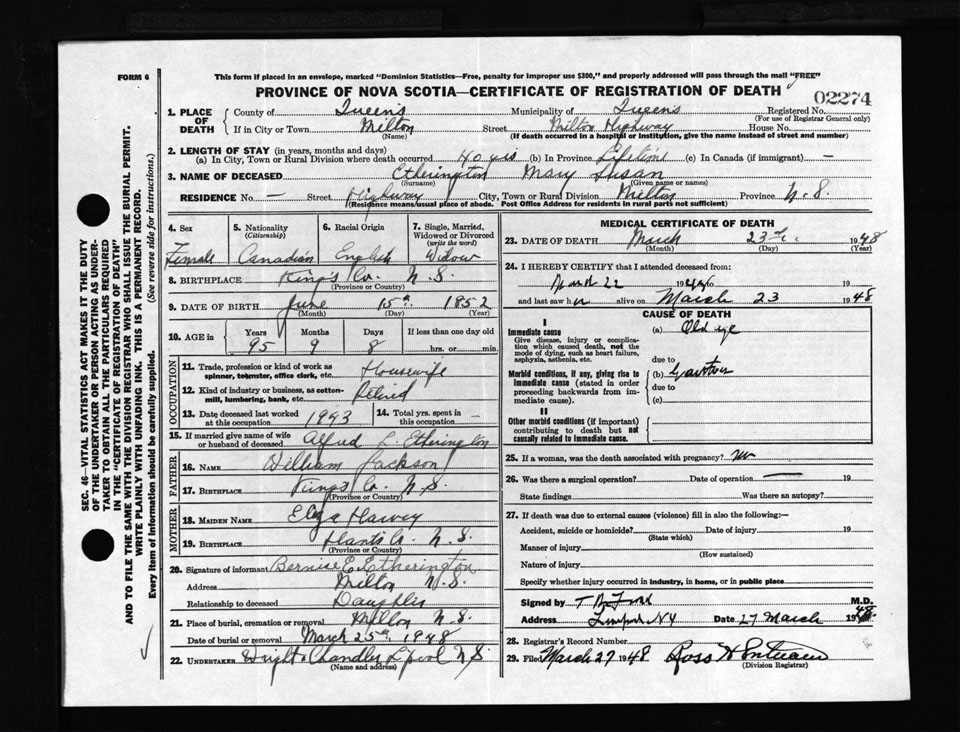 FORM 6
This form if placed in an envelope, marked "Dominion Statistics—Free, penalty for improper use $300," and properly addressed will pass through the mail "FREE"
PROVINCE OF NOVA SCOTIA—CERTIFICATE OF REGISTRATION OF DEATH
02274
1. PLACE OF DEATH County of Queen's Municipality of Queen's Registered No.
(For use of Registrar General only)
If in City or Town Milton Street Milton Highway House No.
(Name) (If death occurred in a hospital or institution, give the name instead of street and number)
2. LENGTH OF STAY (in years, months and days)
(a) In City, Town or Rural Division where death occurred 40 yrs (b) In Province Lifetime (c) In Canada (if immigrant) —
3. NAME OF DECEASED Etherington Mary Susan
(Surname) (Given name or names)
RESIDENCE No. — Street Highway City, Town or Rural Division Milton Province N.S.
(Residence means usual place of abode. Post Office Address for residents in rural parts not sufficient)
4. Sex Female
5. Nationality (Citizenship) Canadian
6. Racial Origin English
7. Single, Married, Widowed or Divorced (write the word) Widow
8. BIRTHPLACE King's Co. N.S.
(Province or Country)
9. DATE OF BIRTH June 15th 1852
(Month) (Day) (Year)
10. AGE in Years Months Days If less than one day old
95 9 8 hrs. or min.
OCCUPATION
11. Trade, profession or kind of work as spinner, teamster, office clerk, etc. Housewife
12. Kind of industry or business, as cotton-mill, lumbering, bank, etc. Retired
13. Date deceased last worked at this occupation 1943
14. Total yrs. spent in this occupation —
15. If married give name of wife or husband of deceased Alfred L. Etherington
FATHER
16. NAME William Jackson
17. BIRTHPLACE King's Co. N.S.
(Province or Country)
MOTHER
18. MAIDEN NAME Eliza Harvey
19. BIRTHPLACE Hants Co. N.S.
(Province or Country)
20. Signature of informant Bernice E. Etherington
Address Milton N.S.
Relationship to deceased Daughter
21. Place of burial, cremation or removal Milton N.S.
Date of burial or removal March 25th 1948
22. UNDERTAKER Wright & Chandler L'pool N.S.
(Name and address)
MEDICAL CERTIFICATE OF DEATH
23. DATE OF DEATH March 23rd 1948
(Month) (Day) (Year)
24. I HEREBY CERTIFY that I attended deceased from:
March 22 19
and last saw her alive on March 23 1948
CAUSE OF DEATH
I
Immediate cause
Give disease, injury or complication which caused death, not the mode of dying, such as heart failure, asphyxia, asthenia, etc.
(a) Old age
due to
Morbid conditions, if any, giving rise to immediate cause (stated in order proceeding backwards from immediate cause).
(b)
due to
(c)
II
Other morbid conditions (if important) contributing to death but not causally related to immediate cause.
25. If a woman, was the death associated with pregnancy? no
26. Was there a surgical operation? Date of operation — 19
State findings Was there an autopsy?
27. If death was due to external causes (violence) fill in also the following:—
Accident, suicide or homicide? Date of injury 19
(State which)
Manner of injury
(How sustained)
Nature of injury
Specify whether injury occurred in industry, in home, or in public place
Signed by M.D.
Address Date 27 March 1948
28. Registrar's Record Number
29. Filed March 27 1948 Ross H
(Division Registrar)
SEC. 46—VITAL STATISTICS ACT MAKES IT THE DUTY
OF THE UNDERTAKER OR PERSON ACTING AS UNDER-
TAKER TO OBTAIN ALL THE PARTICULARS REQUIRED
IN THE "CERTIFICATE OF REGISTRATION OF DEATH"
AND TO FILE THE SAME WITH THE DIVISION REGISTRAR WHO SHALL ISSUE THE BURIAL PERMIT.
WRITE PLAINLY WITH UNFADING INK. THIS IS A PERMANENT RECORD.
Every item of information should be carefully supplied. (See reverse side for instructions.)